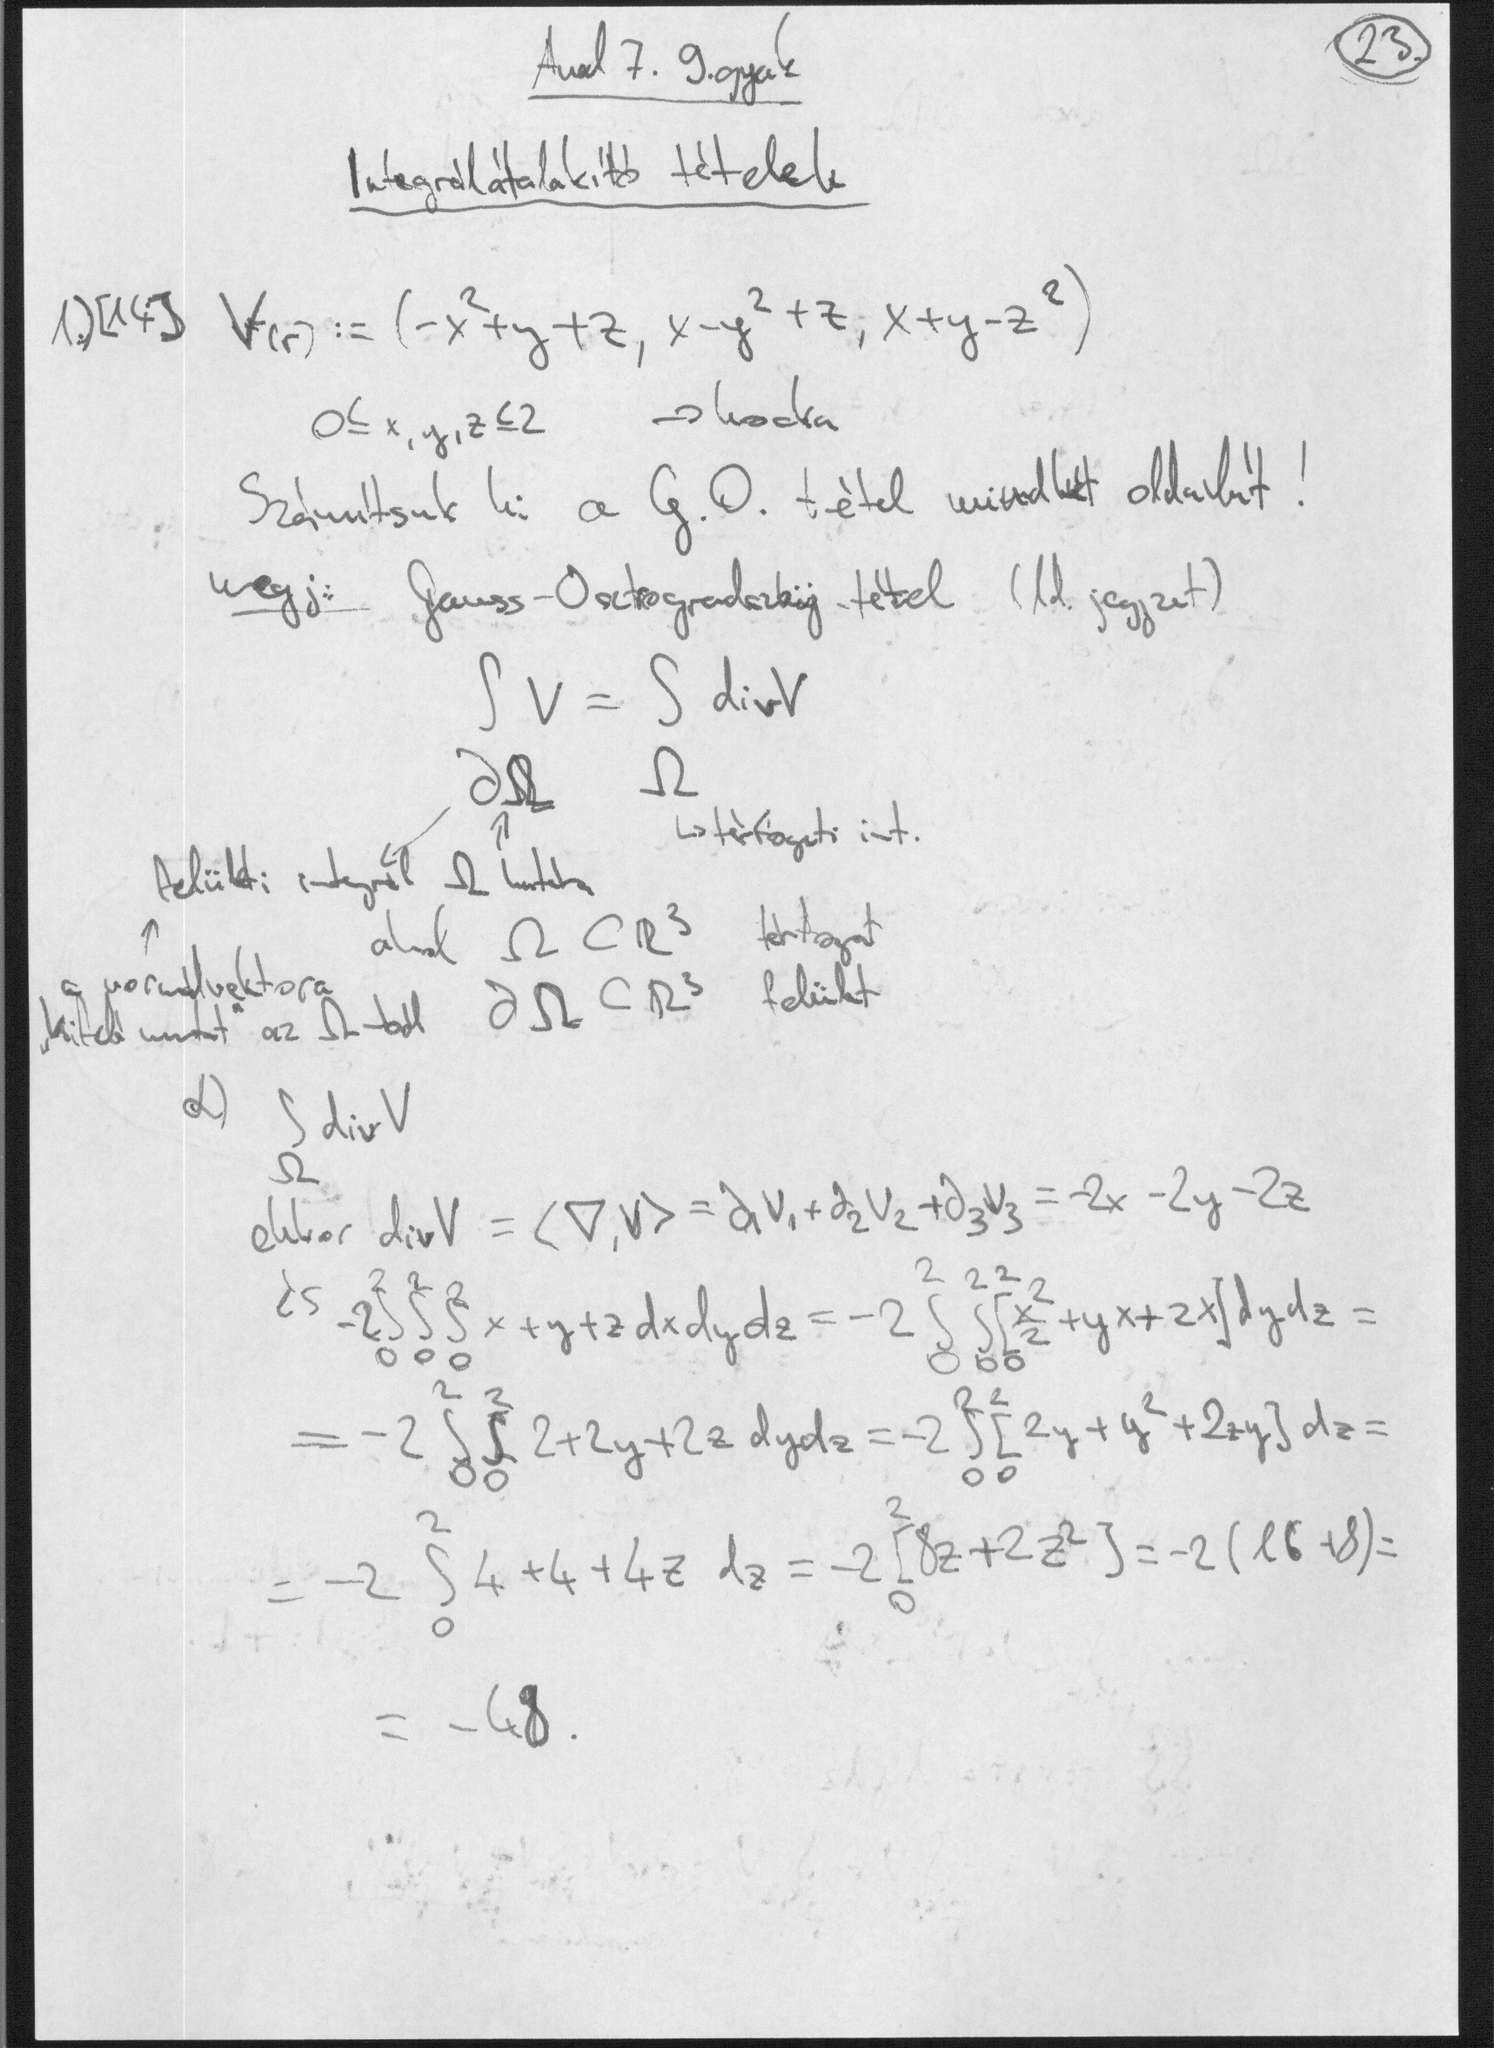 23.
Anal 7. 9.gyak
Integrálátalakító tételek
1.)[14] V(r) := (-x²+y+z, x-y²+z, x+y-z²)
0≤x,y,z≤2 → kocka
Számítsuk ki a G.O. tétel mindkét oldalát!
megj: Gauss-Osztogradszkij-tétel (ld. jegyzet)
∫ V = ∫ divV
∂Ω Ω
↳ térfogati int.
felületi integrál Ω határa
ahol Ω ⊂ ℝ³ térfogat
a normálvektora
"kifelé mutat" az Ω-ból ∂Ω ⊂ ℝ³ felület
α) ∫ divV
Ω
ekkor divV = ⟨∇,V⟩ = ∂₁V₁+∂₂V₂+∂₃V₃ = -2x-2y-2z
és -2∫₀²∫₀²∫₀² x+y+z dxdydz = -2 ∫₀²∫₀²₀²[x²/2+yx+zx] dydz =
= -2 ∫₀²∫₀² 2+2y+2z dydz = -2 ∫₀²₀²[2y+y²+2zy] dz =
= -2 ∫₀² 4+4+4z dz = -2 ₀²[8z+2z²] = -2(16+8) =
= -48.